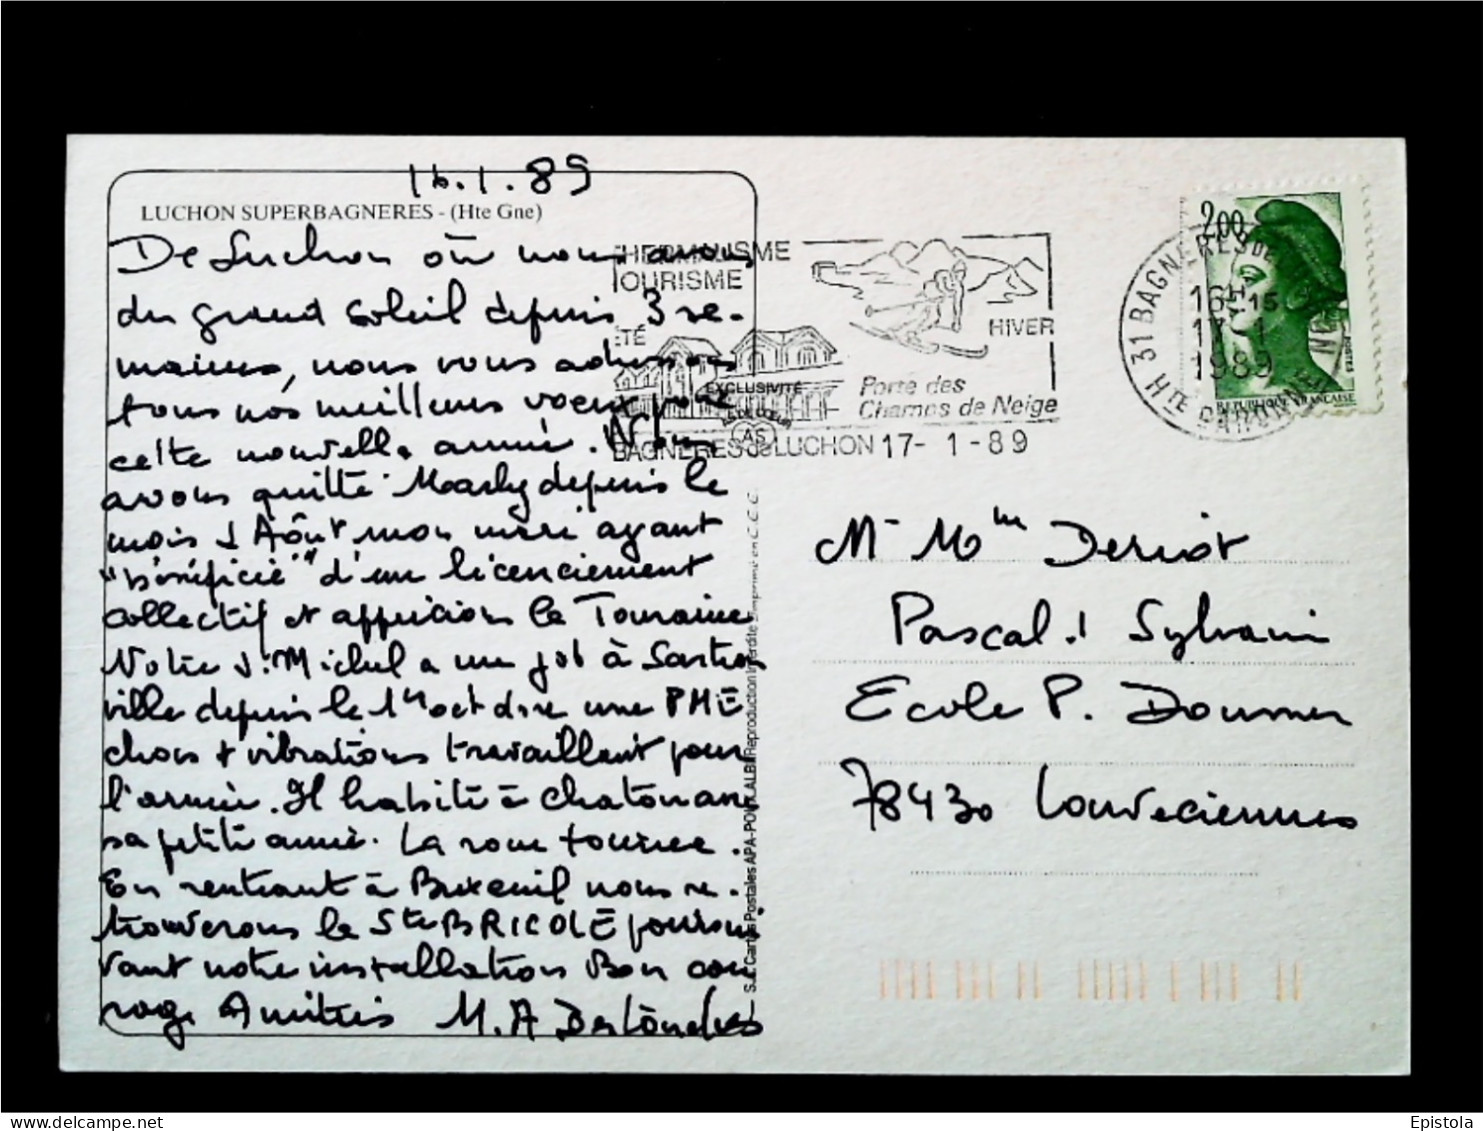 16.1.89
LUCHON SUPERBAGNERES - (Hte Gne)
De Luchon où nous avons
du grand soleil depuis 3 se-
maines, nous vous adressons
tous nos meilleurs voeux pour
cette nouvelle année. Nous
avons quitté Marly depuis le
mois d'Août mon mari ayant
"bénéficié" d'un licenciement
collectif et apprécions la Touraine
Notre J. Michel a un job à Sartrou
ville depuis le 1er oct dans une PME
chocs + vibrations travaillant pour
l'armée. Il habite à Chatou avec
sa petite amie. La roue tourne.
En rentrant à Buxeuil nous re-
trouverons la Ste BRICOLE poursui
vant notre installation Bon cou
rage Amitiés M.A Deslandes
THERMALISME
TOURISME
ETÉ
HIVER
Porte des
Champs de Neige
BAGNERES de LUCHON 17- 1 -89
EXCLUSIVITÉ
AS DE CŒUR
AS
31 BAGNERES DE LUCHON
16H15
17-1
1989
Hte GARONNE
2,00
POSTES
REPUBLIQUE FRANCAISE
Mr Mme Deriot
Pascal & Sylvaine
Ecole P. Doumer
78430 Louveciennes
S.L. Cartes Postales APA-POUX ALBI Reproduction Interdite Imprimé en C.C.C.
delcampe.net
Epistola